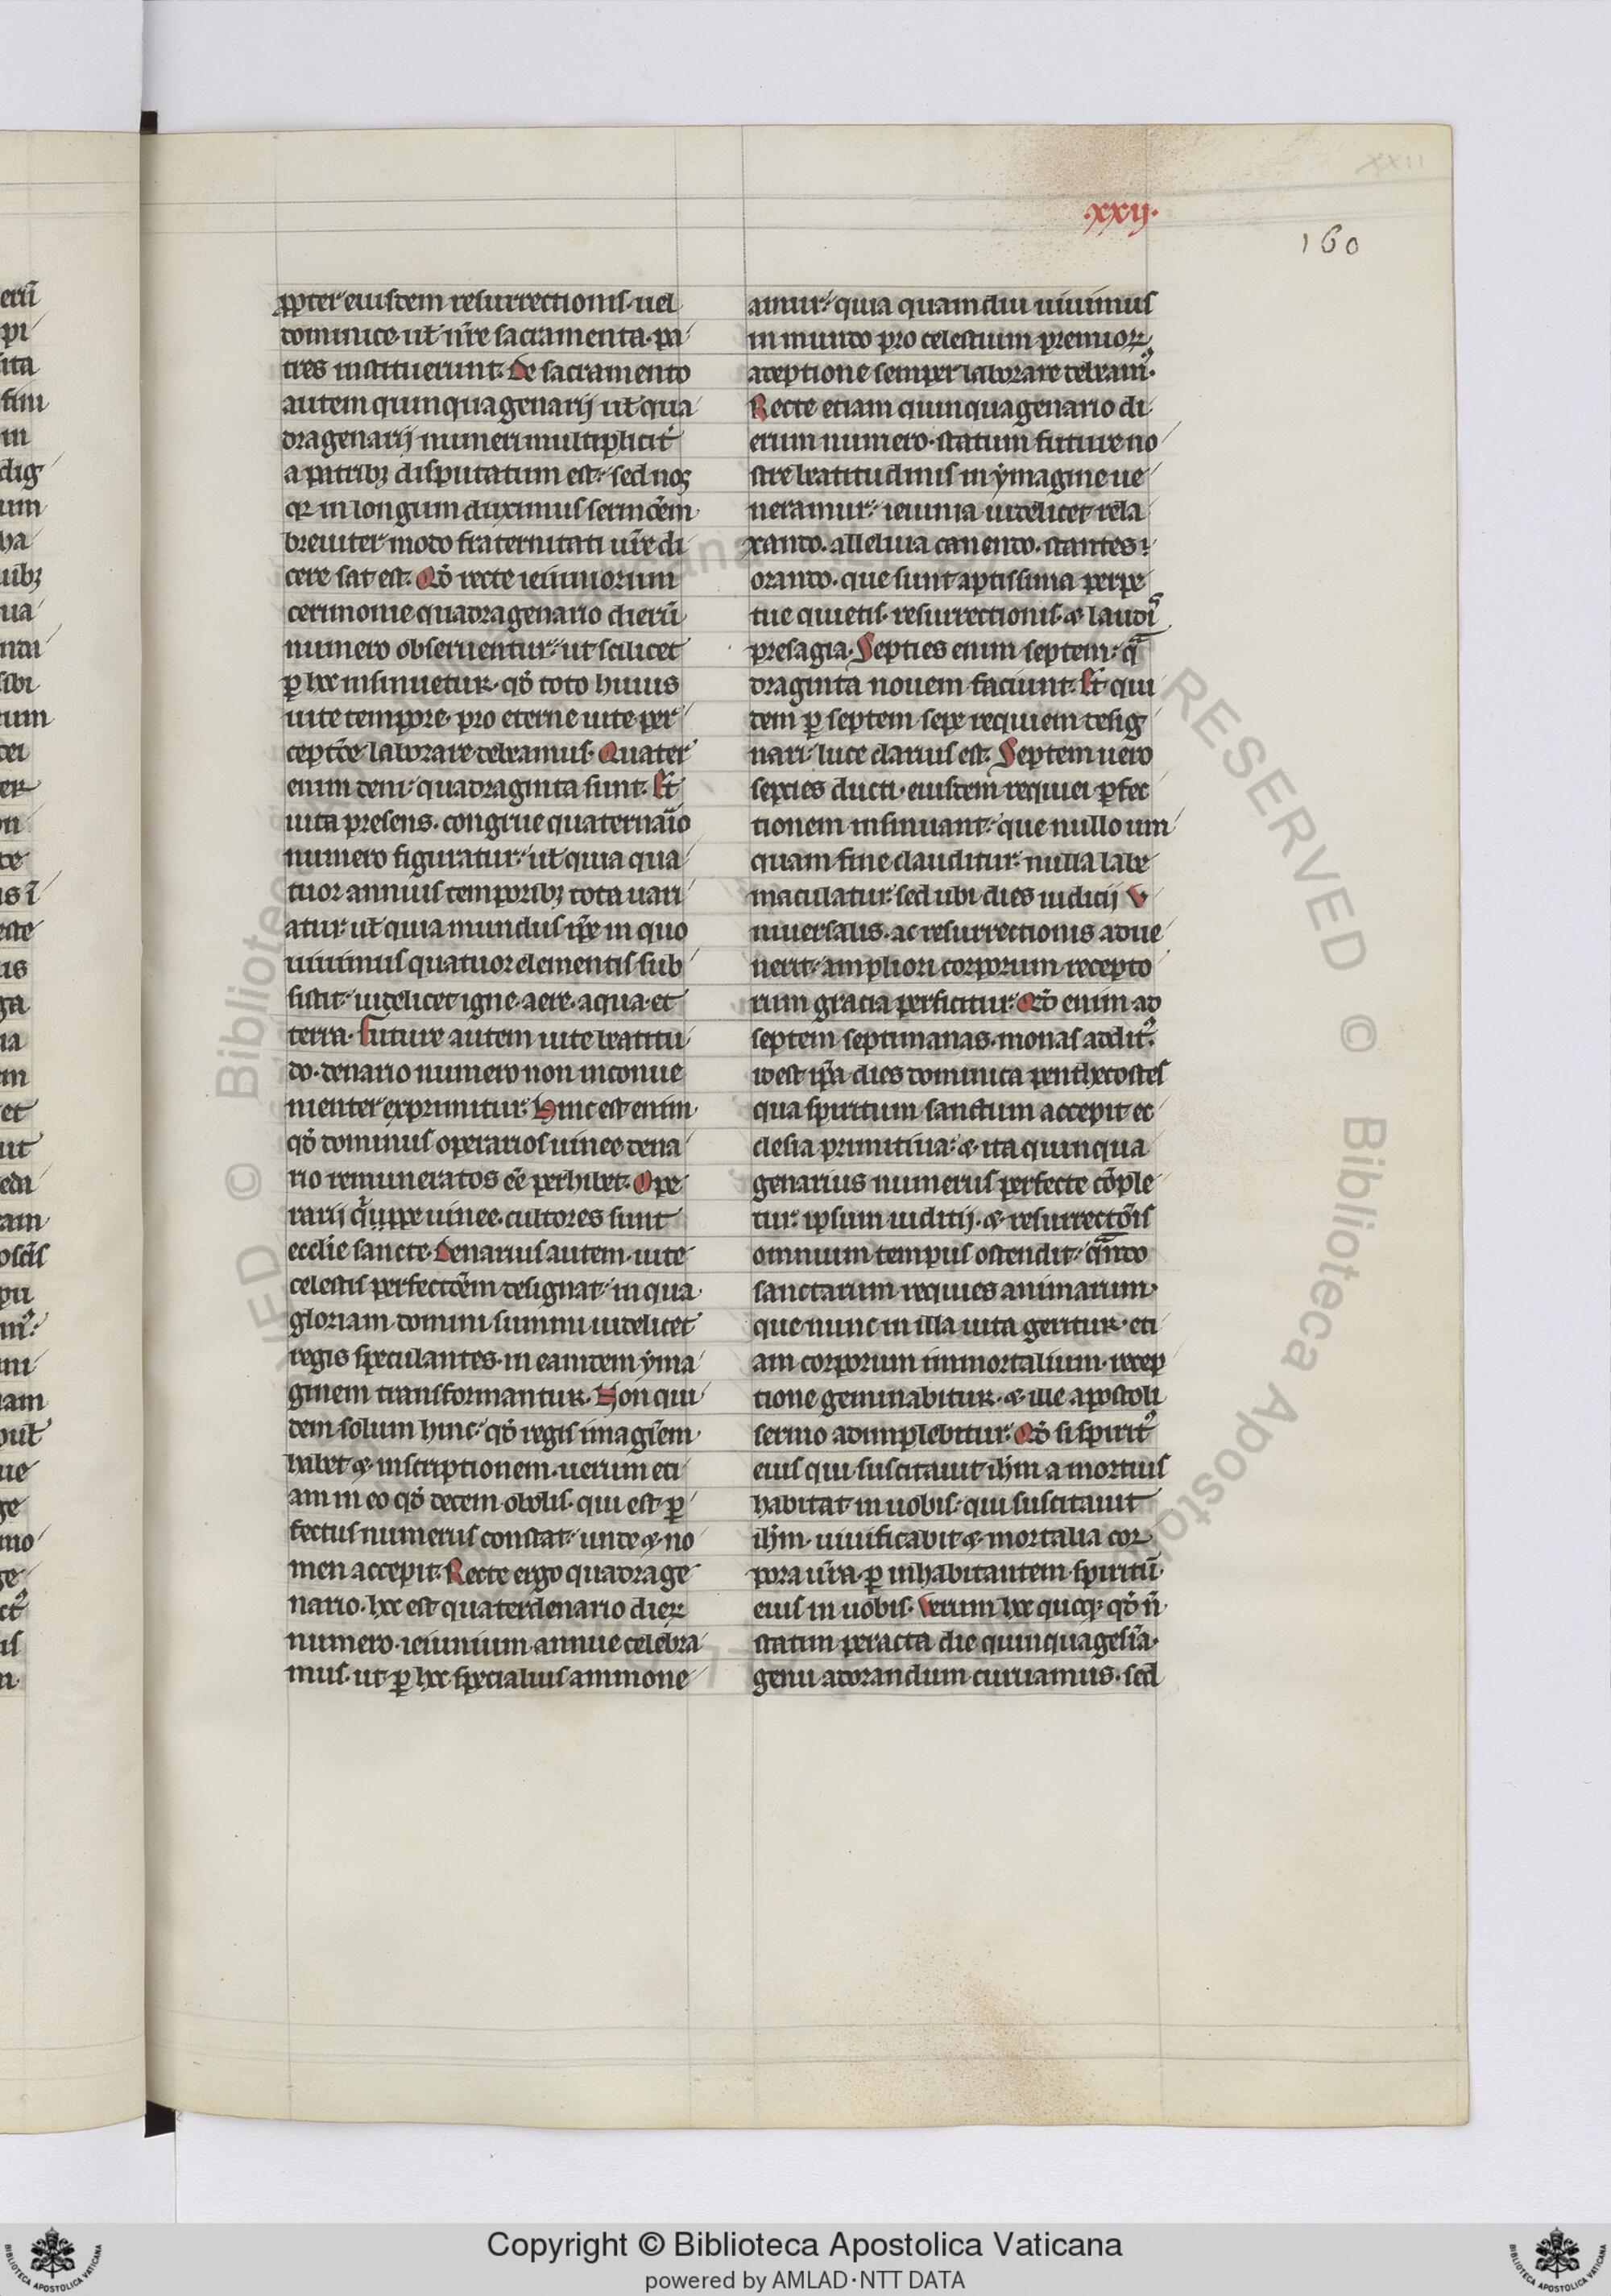 .xxij.
160
ꝓpter eiusdem resurrectionis. uel
dominice. uł nr̄e sacramenta. pa
tres instituerunt. De sacramento
autem quinquagenarij uł qua
dragenarij numeri multiplicit᷑
a patribꝫ disputatum est. sed nos
qꝛ in longum duximus sermōem
breuiter modo fraternitati ur̄e di
cere sat est. Qd̓ recte ieiuniorum
cerimonie quadragenario dierū
numero obseruentur. ut scilicet
ꝑ hoc insinuetur. qd̓ toto huius
uite tempore. pro eterne uite per
ceptōe laborare debeamus. Quater
enim deni. quadraginta sunt. Et
uita presens. congrue quaternaīo
numero figuratur. uł quia qua
tuor annuis temporibꝫ tota uari
atur. uł quia mundus ip̄e in quo
uiuimus quatuor elementis sub
sistit. uidelicet igne. aere. aqua. et
terra. Future autem uite beatitu
do. denario numero non inconue
nienter exprimitur. Hinc est enim
qd̓ dominus operarios uinee dena
rio remuneratos eē perhibet. Ope
rarij quippe uinee. cultores sunt
ecclie sancte. Denarius autem. uite
celestis perfectōem designat. in qua
gloriam domini summi uidelicet
regis speculantes. in eamdem yma
ginem transformantur. Non qui
dem solum hinc. qd̓ regis imagīem
habet ⁊ inscriptionem. uerum eti
am in eo qd̓ decem obolis. qui est ꝑ
fectus numerus constat. unde ⁊ no
men accepit. Recte ergo quadrage
nario. hoc est quaterdenario dieꝝ
numero. ieiunium annue celebra
mus. ut ꝑ hoc specialius ammone
amur. quia quamdiu uiuimus
in mundo pro celestium premioꝝ
adeptione semper laborare debeamꝰ.
Recte etiam quinquagenario di
erum numero. statum future no
stre beatitudinis in ymagine ue
neramur. ieiunia uidelicet rela
xando. alleluia canendo. stantes
orando. que sunt aptissima perpe
tue quietis. resurrectionis. ⁊ laudis
presagia. Septies enim septem. q̄
draginta nouem faciunt. Et qui
dem ꝑ septem sepe requiem desig
nari. luce clarius est. Septem uero
septies ducti. eiusdem requiei ꝑfec
tionem insinuant. que nullo um
quam fine clauditur. nulla labe
maculatur. sed ubi dies iudicij v
niuersalis. ac resurrectionis adue
nerit. ampliori corporum recepto
rum gracia perficitur. Qd̓ enim ad
septem septimanas. monas addit᷑.
idest ip̄a dies dominica penthecostes
qua spiritum sanctum accepit ec
clesia primitiua. ⁊ ita quinqua
genarius numerus perfecte cōple
tur. ipsum iuditij. ⁊ resurrectōis
omnium tempus ostendit. q̄ndo
sanctarum requies animarum.
que nunc in illa uita geritur. eti
am corporum immortalium. recep
tione geminabitur. ⁊ ille apostoli
sermo adimplebitur. Qd̓ si spiritꝰ
eius qui suscitauit ih̄m a mortuis
habitat in uobis. qui suscitauit
ih̄m. uiuificabit ⁊ mortalia cor
pora ur̄a. ꝑ inhabitantem spiritū
eius in uobis. Verum hoc quoqꝫ. qd̓ n̄
statim peracta die quinquagesīa.
genu adorandum curuamus. sed
Copyright © Biblioteca Apostolica Vaticana
powered by AMLAD·NTT DATA